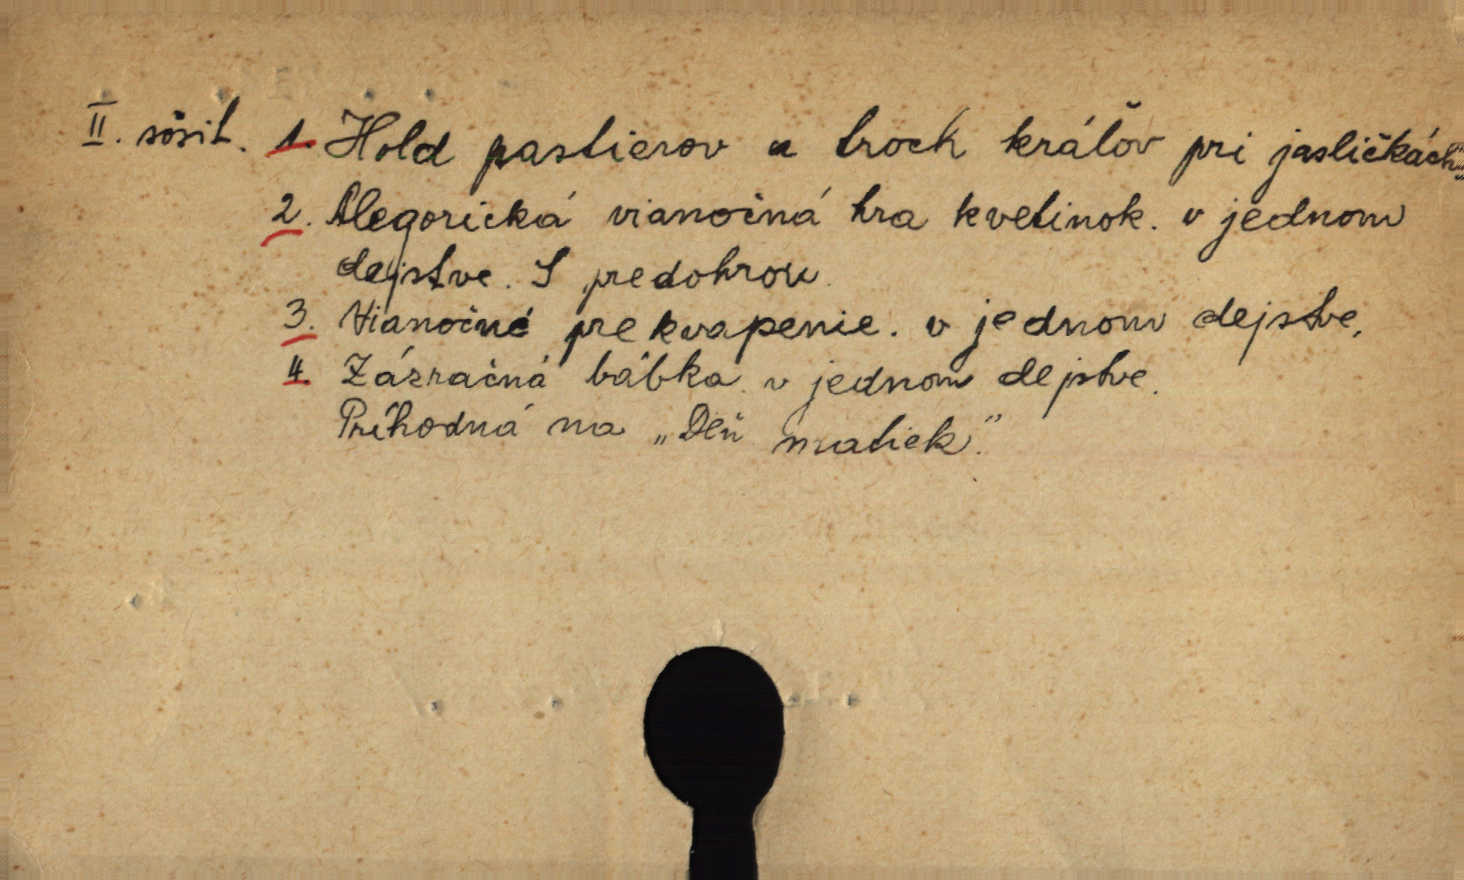 II. sôšit. 1. Hold pastierov a troch kráľov pri jasličkách.
2. Alegorická vianočná hra kvetinok. v jednom
dejstve. S predohrou.
3. Vianočné prekvapenie. v jednom dejstve.
4. Zázračná bábka. v jednom dejstve.
Príhodná na „Deň matiek.“